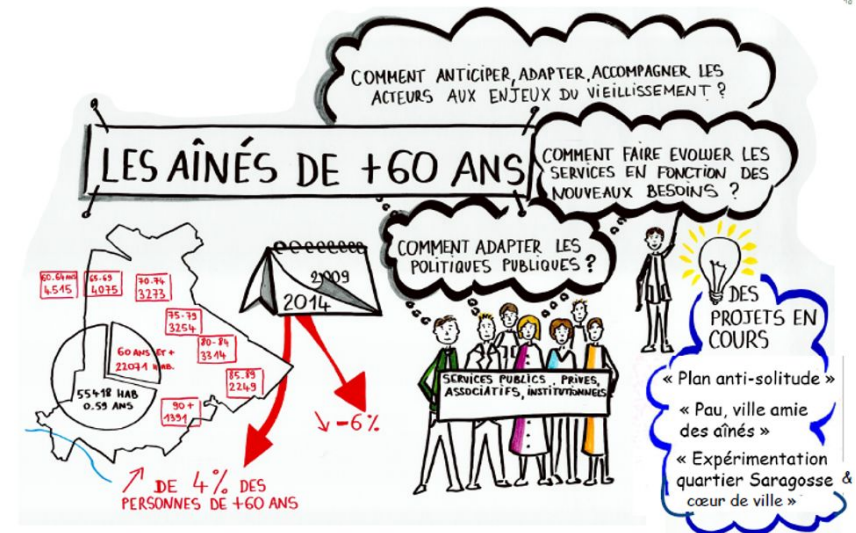 COMMENT ANTICIPER, ADAPTER, ACCOMPAGNER LES
ACTEURS AUX ENJEUX DU VIEILLISSEMENT ?
LES AÎNÉS DE +60 ANS
COMMENT FAIRE EVOLUER LES
SERVICES EN FONCTION DES
NOUVEAUX BESOINS ?
COMMENT ADAPTER LES
POLITIQUES PUBLIQUES ?
60-64 ANS
4515
65-69
4075
70-74
3273
75-79
3254
80-84
3314
85-89
2249
90+
1391
60 ANS ET +
22071 HAB.
55418 HAB
0.59 ANS
2009
2014
↘ -6%
↗ DE 4% DES
PERSONNES DE +60 ANS
SERVICES PUBLICS, PRIVES,
ASSOCIATIFS, INSTITUTIONNELS
DES
PROJETS EN
COURS
« Plan anti-solitude »
« Pau, ville amie
des aînés »
« Expérimentation
quartier Saragosse &
cœur de ville »